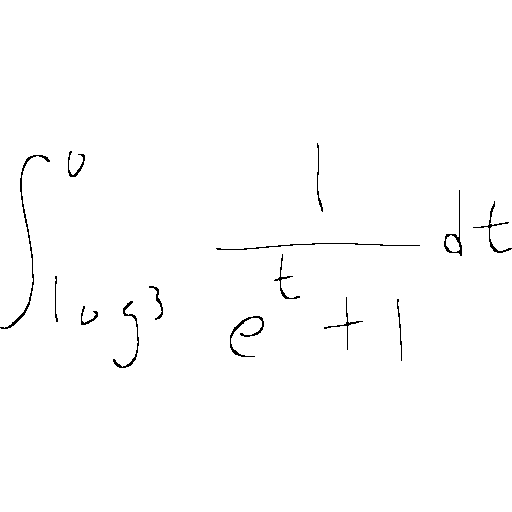 \int_{\log 3}^{0} \frac{1}{e^{t}+1} dt